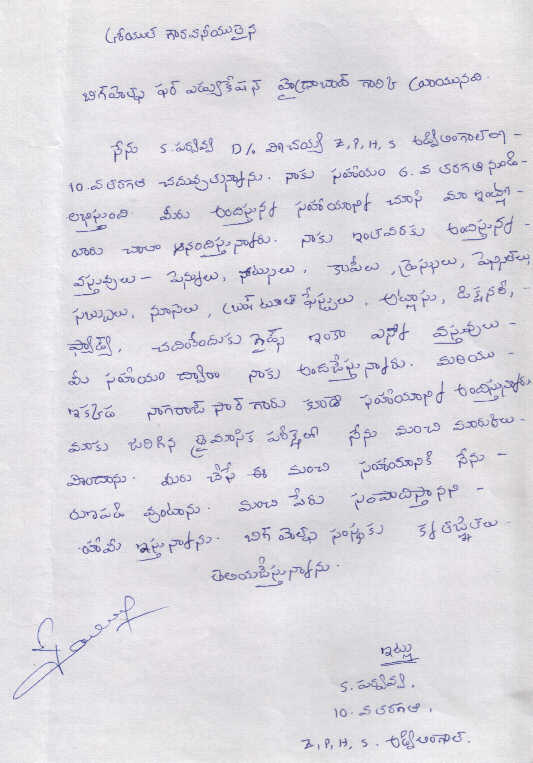 శ్రీయుత గౌరవనీయులైన
బిగ్‌హెల్ప్ ఫర్ ఎడ్యుకేషన్ హైద్రాబాద్ గారికి వ్రాయునది.
నేను S. పద్మ D/o Z,P,H,S అడ్విఆంగోల్‌లో -
10. వ తరగతి చదువుతున్నాను. నాకు సహాయం 6. వ తరగతి నుండి -
లభిస్తుంది. మీరు అందిస్తున్న సహాయాన్ని చూసి మా ఇంట్లో -
వారు చాలా ఆనందిస్తున్నారు. నాకు ఇంతవరకు అందిస్తున్న -
వస్తువులు - పెన్నులు, నోట్సులు, కాపీలు, డ్రెస్సులు, పెన్సిల్‌లు,
సబ్బులు, నూనెలు, బ్రష్ టూత్ పేస్టులు, అట్లాసు, డిక్షనరీ, -
ప్యాడ్స్, చదివేందుకు గైడ్స్ ఇంకా ఎన్నో వస్తువులు -
మీ సహాయం ద్వారా నాకు అందజేస్తున్నారు. మరియు -
ఇక్కడ నాగరాజ్ సార్ గారు కూడా సహాయాన్ని అందిస్తున్నారు
మాకు జరిగిన త్రైమాసిక పరీక్షలో నేను మంచి మార్కులు -
పొందాను. మీరు చేసే ఈ మంచి సహాయానికి నేను -
రుణపడి వుంటాను. మంచి పేరు సంపాదిస్తానని -
హామీ ఇస్తున్నాను. బిగ్ హెల్ప్ సంస్థకు కృతజ్ఞతలు -
తెలియజేస్తున్నాను.
ఇట్లు
S. పద్మ,
10. వ తరగతి,
Z,P,H,S. అడ్విఆంగోల్.